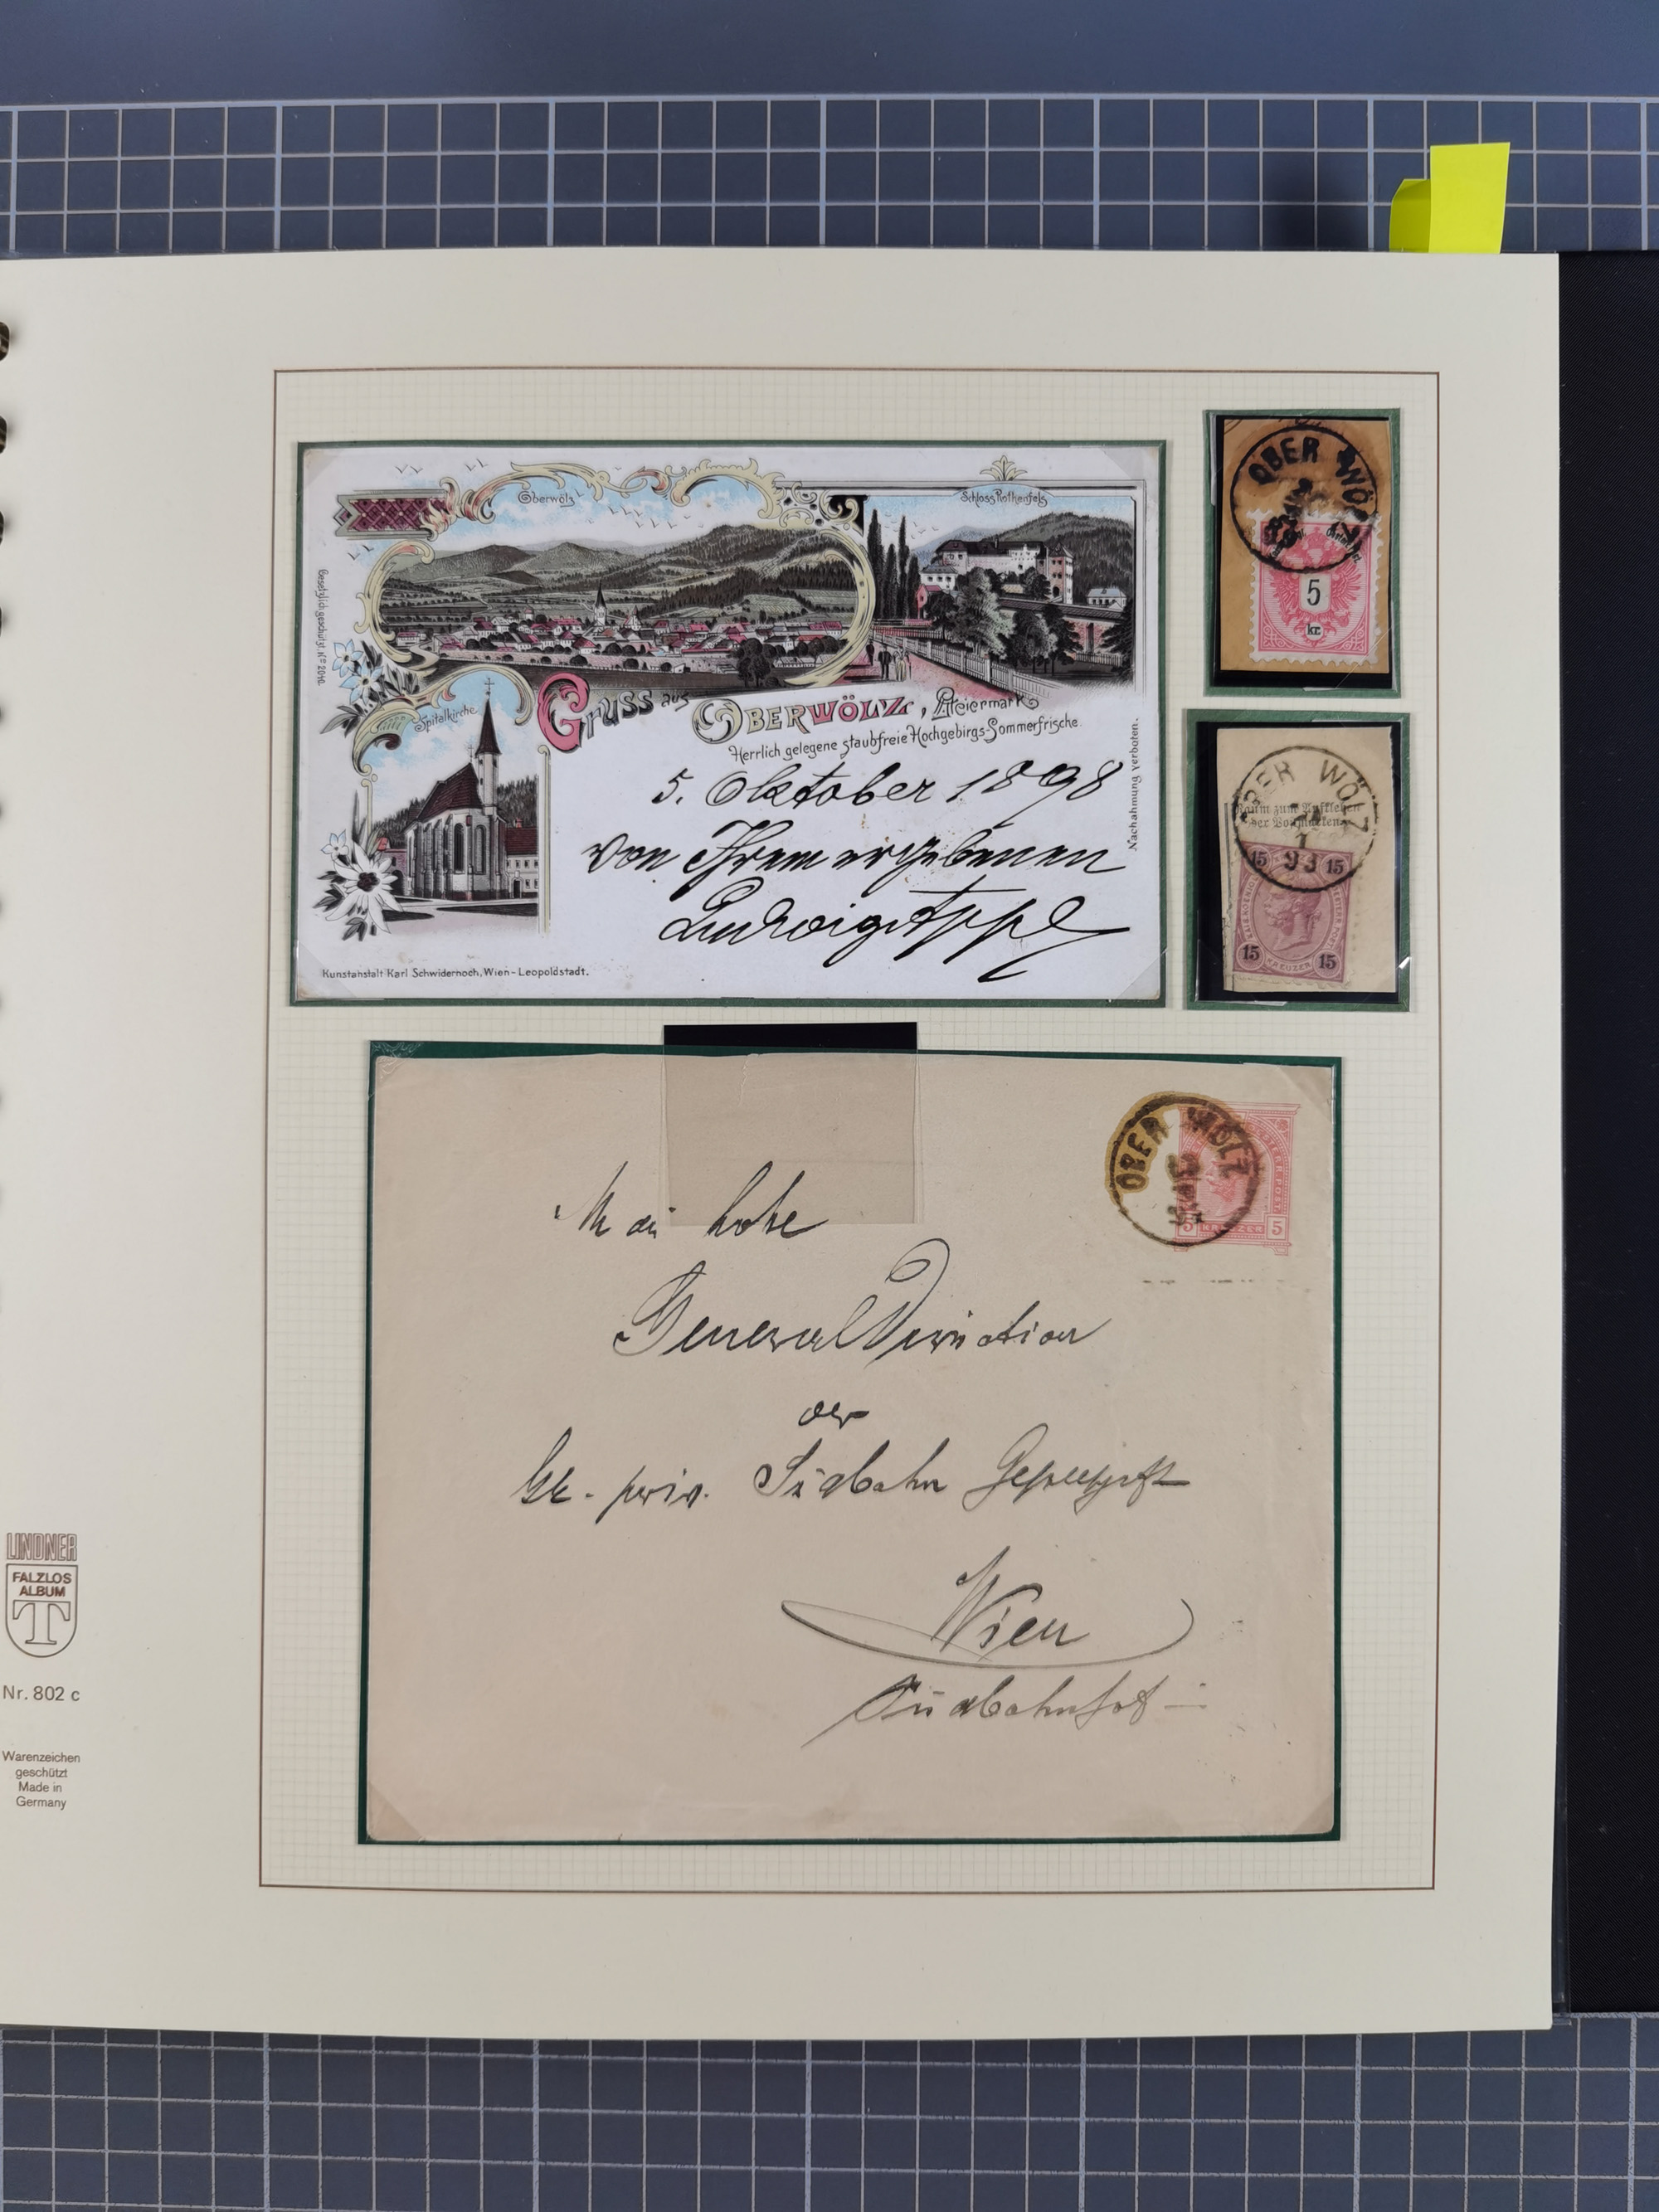 Oberwölz
Schloss Rothenfels
Gesetzlich geschützt. Nº 2040.
Spitalkirche
Gruss aus OBERWÖLZ, Steiermark
Herrlich gelegene staubfreie Hochgebirgs-Sommerfrische.
5. Oktober 1898
von Ihrem ergebenen
Ludwig
Nachahmung verboten.
Kunstanstalt Karl Schwidernoch, Wien-Leopoldstadt.
OBER WÖLZ
5
kr.
OBER WÖLZ
Raum zum Aufkleben
der Postmarken
1
93
15 15
15 KREUZER 15
OBER WÖLZ
5 KREUZER 5
hohe
General Direction
der
kk. priv. Südbahn Gesellschaft
Wien
Südbahnhof
LINDNER
FALZLOS
ALBUM
T
Nr. 802 c
Warenzeichen
geschützt
Made in
Germany